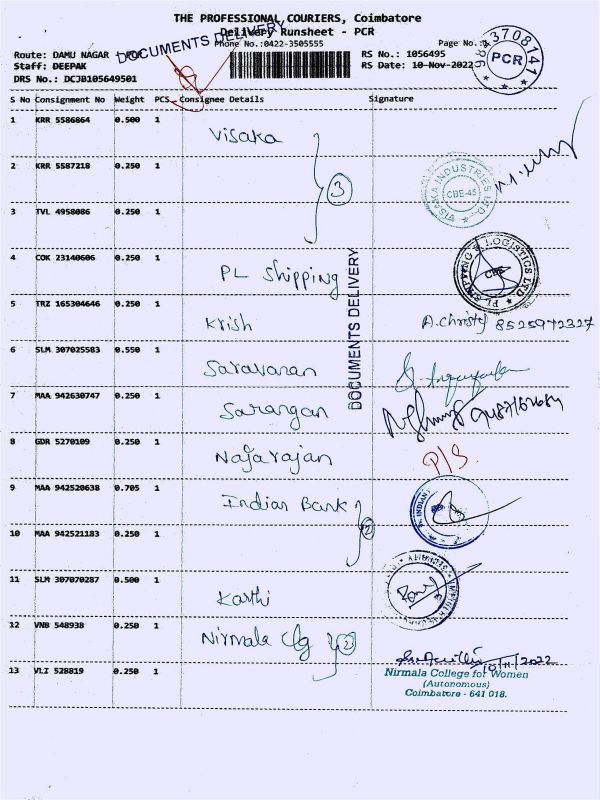 THE PROFESSIONAL COURIERS, Coimbatore
Delivery Runsheet - PCR
Phone No.:0422-3505555
Page No.:
Route: DAMU NAGAR
DOCUMENTS DELIVERY
RS No.: 1056495
Staff: DEEPAK
RS Date: 10-Nov-2022
DRS No.: DCJB105649501
9843708141
PCR
S No Consignment No Weight PCS Consignee Details Signature
1 KRR 5586864 0.500 1 Visaka
2 KRR 5587218 0.250 1
3
VISAKA INDUSTRIES LTD
CBE-45
3 TVL 4958086 0.250 1
4 COK 23140606 0.250 1 PL Shipping
PL SHIPPING & LOGISTICS LTD
CBE
DOCUMENTS DELIVERY
5 TRZ 165304646 0.250 1 Krish A.Christy 8525972327
6 SLM 307025583 0.550 1 Saravanan
7 MAA 942630747 0.250 1 Sarangan
8 GDR 5270109 0.250 1 Nagarajan P/S
9 MAA 942520638 0.705 1 Indian Bank
INDIAN
2
10 MAA 942521183 0.250 1
11 SLM 307070287 0.500 1 Karthi
SECURITY
12 VNB 548938 0.250 1 Nirmala Clg 2
10/11/2022
13 VLI 528819 0.250 1
Nirmala College for Women
(Autonomous)
Coimbatore - 641 018.